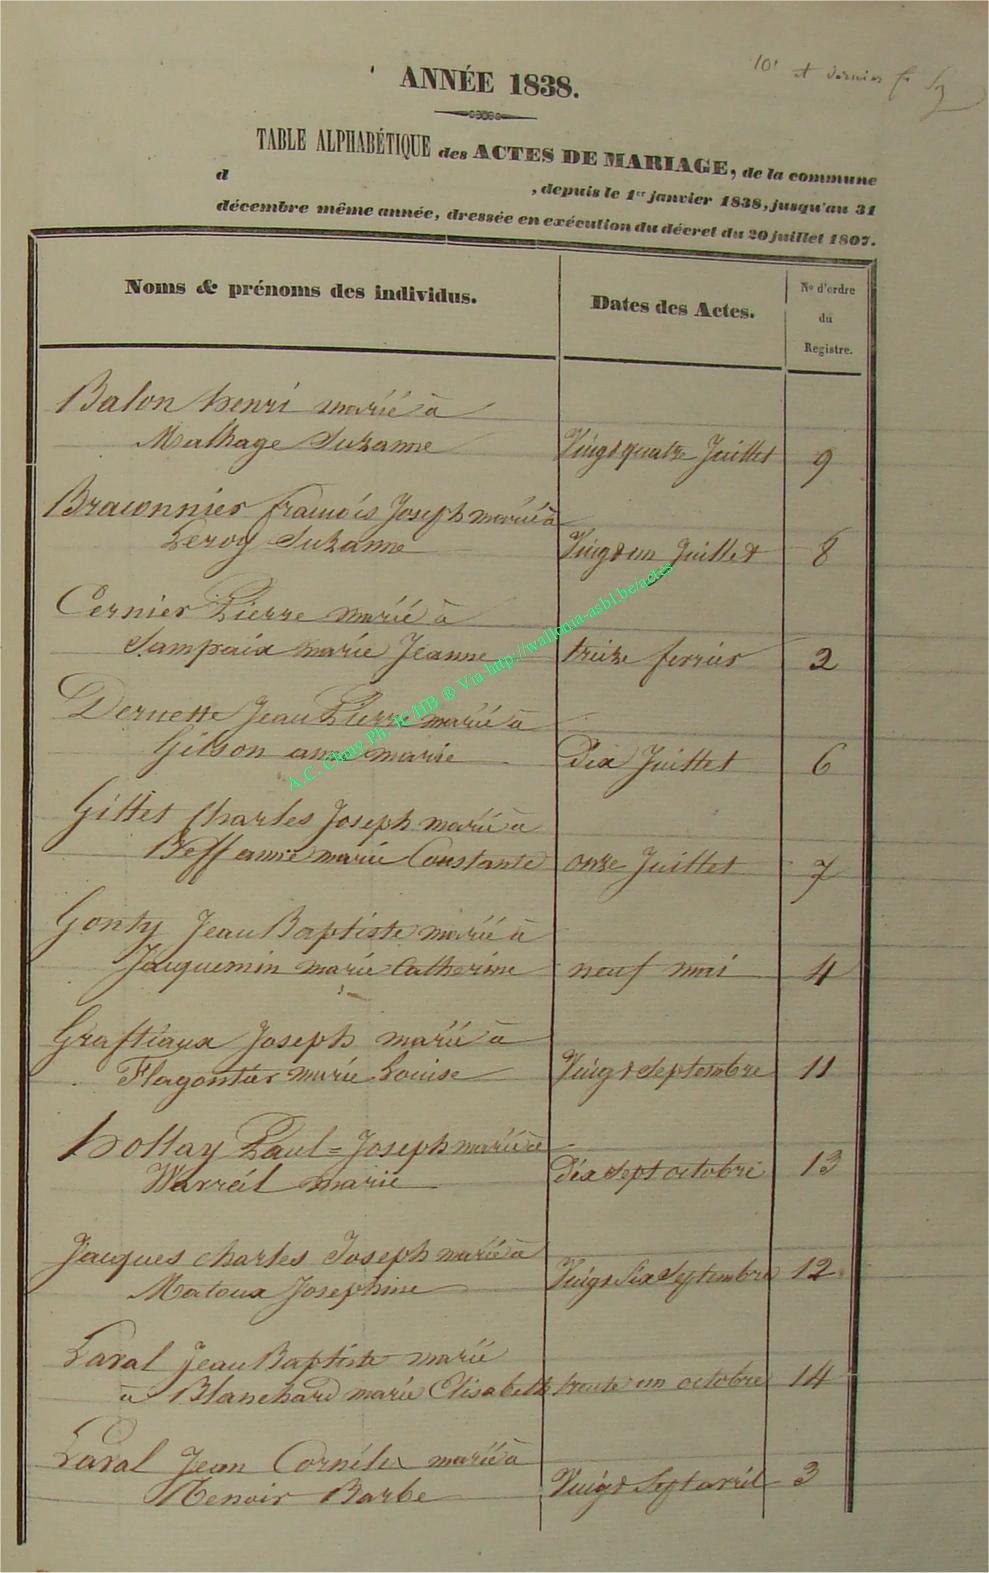 10e et dernier f.
ANNÉE 1838.
TABLE ALPHABÉTIQUE des ACTES DE MARIAGE, de la commune
d , depuis le 1er janvier 1838, jusqu'au 31
décembre même année, dressée en exécution du décret du 20 juillet 1807.
Noms & prénoms des individus. Dates des Actes. No d'ordre du Registre.
Balon henri marié à
Malhage Suzanne Vingt quatre Juillet 9
Braconnier francois Joseph marié à
Leroy Suzanne Vingt un Juillet 8
Cernier Pierre marié à
Sampaix marie Jeanne treize fevrier 2
Dernette Jean Pierre marié à
Gilson anne marie Dix Juillet 6
Gillet Charles Joseph marié à
Beff anne marie Constante onze Juillet 7
Gonty Jean Baptiste marié à
Jacquemin marie Catherine neuf mai 4
Graftiaux Joseph marié à
Flagontier marie Louise Vingt Septembre 11
hollay Paul=Joseph marié à
Warreil marie Dix sept octobre 13
Jacques charles Joseph marié à
Matoux Josephine Vingt Six Septembre 12
Laval Jean Baptiste marié
à Blanchard marie Elisabeth trente un octobre 14
Laval Jean Cornéles marié à
Renoir Barbe Vingt Sept avril 3
A.C. Chiny Ph. JC/HB ® Via http://wallonia-asbl.be/actes